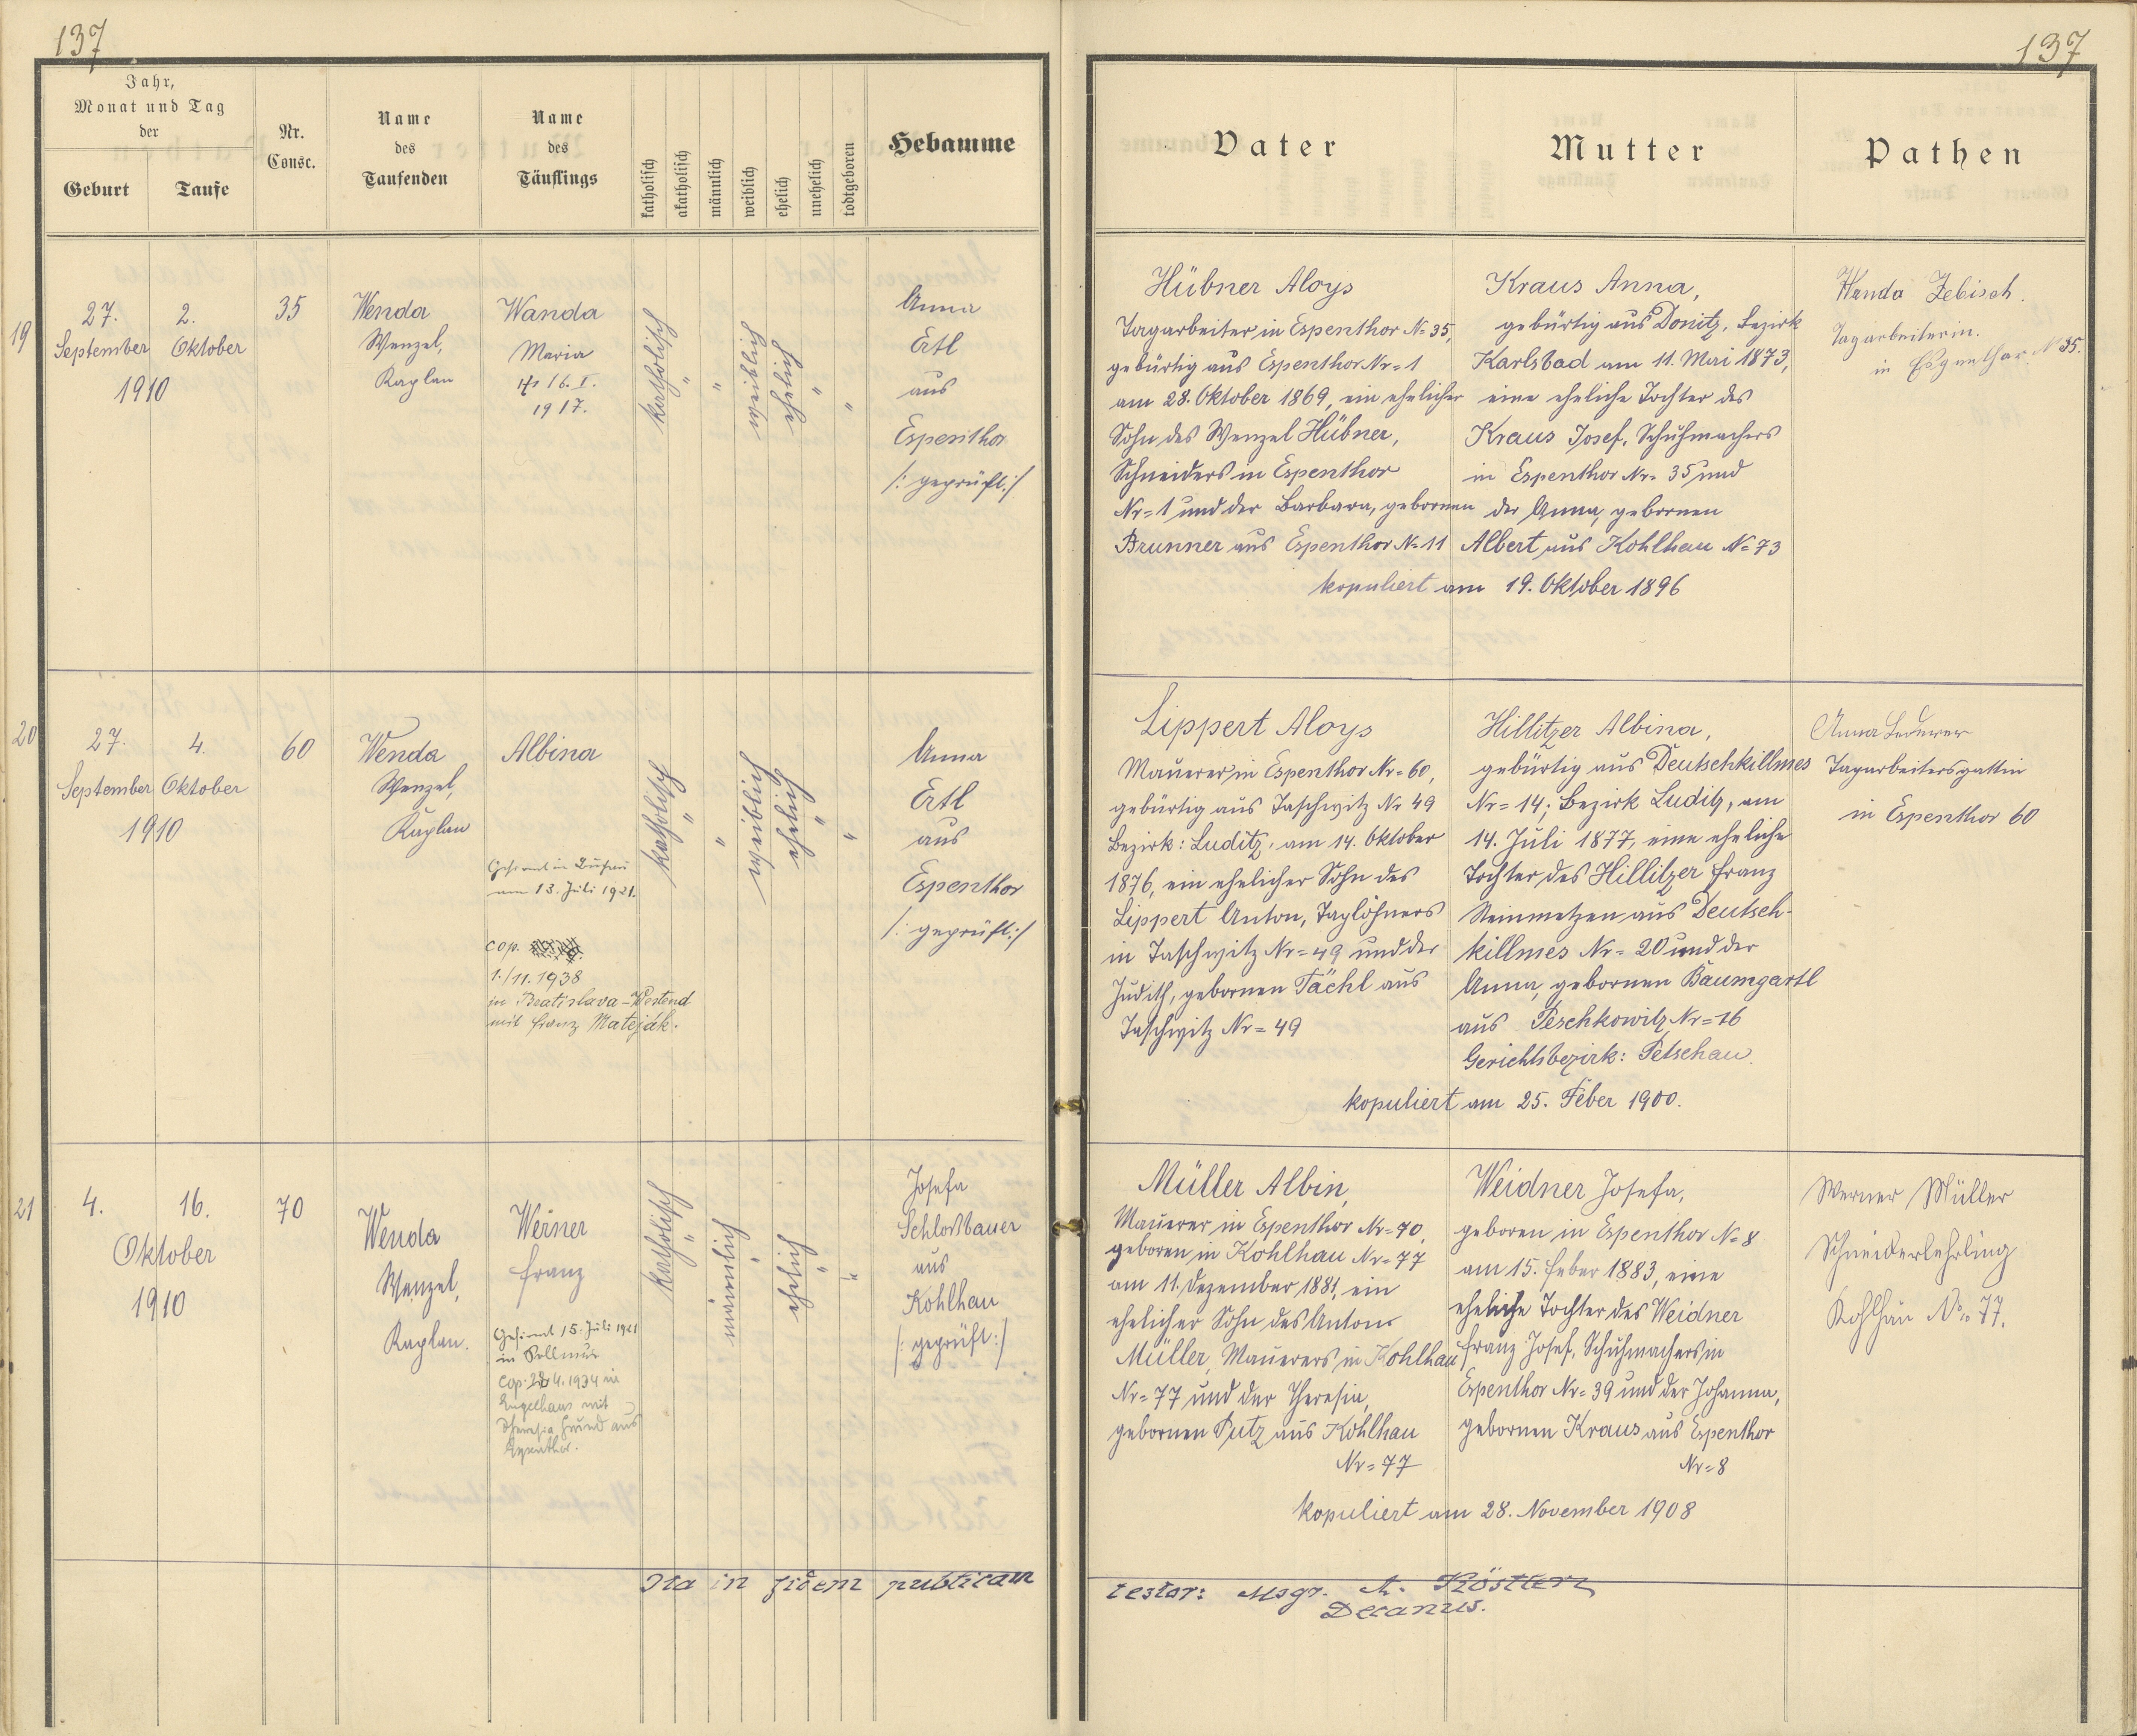 137
137
Jahr,
Monat und Tag
der
Geburt
Taufe
Nr.
Consc.
Name
des
Taufenden
Name
des
Täuflings
katholisch
akatholisch
männlich
weiblich
ehelich
unehelich
todtgeboren
Hebamme
Vater
Mutter
Pathen
19
27.
September
2.
Oktober
1910
35
Wenda
Wenzel,
Kaplan
Wanda
Maria
16. I.
1917.
katholisch
"
"
weiblich
ehelich
"
"
Anna
Ertl
aus
Espenthor
/: geprüft :/
Hübner Aloys
Tagarbeiter in Espenthor N= 35,
gebürtig aus Espenthor Nr= 1
am 28. Oktober 1869, ein ehelicher
Sohn des Wenzel Hübner,
Schneiders in Espenthor
Nr= 1 und der Barbara, gebornen
Brunner aus Espenthor N= 11
Kraus Anna,
gebürtig aus Donitz, Bezirk
Karlsbad am 11. Mai 1873,
eine eheliche Tochter des
Kraus Josef, Schuhmachers
in Espenthor Nr= 35 und
der Anna, gebornen
Albert aus Kohlhau N= 73
kopuliert am 19. Oktober 1896
Wanda Zebisch.
Tagarbeiterin.
in Espenthor N 35.
20
27.
September
4.
Oktober
1910
60
Wenda
Wenzel,
Kaplan
Albina
Gefirmt in
am 13. Juli 1921.
cop.
1./11. 1938
in Bratislava-Westend
mit Franz Mateják.
katholisch
"
"
weiblich
ehelich
"
"
Anna
Ertl
aus
Espenthor
/: geprüft :/
Lippert Aloys
Mauerer in Espenthor Nr= 60,
gebürtig aus Taschwitz Nr 49
Bezirk: Luditz, am 14. Oktober
1876, ein ehelicher Sohn des
Lippert Anton, Taglöhners
in Taschwitz Nr= 49 und der
Judith, gebornen Tächl aus
Taschwitz Nr= 49
Hillitzer Albina,
gebürtig aus Deutschkillmes
Nr= 14; Bezirk Luditz, am
14. Juli 1877, eine eheliche
Tochter des Hillitzer Franz
Steinmetzen aus Deutsch-
killmes Nr= 20 und der
Anna, gebornen Baumgartl
aus Peschkowitz Nr= 16
Gerichtsbezirk: Petschau.
kopuliert am 25. Feber 1900.
Anna Lederer
Tagarbeitersgattin
in Espenthor 60
21
4.
16.
Oktober
1910
70
Wenda
Wenzel,
Kaplan.
Werner
Franz
Gefirmt 15. Juli 1921
in
Cop. 28 4. 1934 in
Engelhaus mit
Theresia Grund aus
Espenthor.
katholisch
"
männlich
"
ehelich
"
"
Josefa
Schloßbauer
aus
Kohlhau
/: geprüft :/
Müller Albin,
Mauerer in Espenthor Nr= 70,
geboren in Kohlhau Nr= 77
am 11. Dezember 1881, ein
ehelicher Sohn des Anton
Müller, Mauerers in Kohlhau
Nr= 77 und der Theresia,
gebornen Putz aus Kohlhau
Nr= 77
Weidner Josefa,
geboren in Espenthor N= 8
am 15. Feber 1883, eine
eheliche Tochter des Weidner
Franz Josef, Schuhmachers in
Espenthor Nr= 39 und der Johanna,
gebornen Kraus aus Espenthor
Nr= 8
kopuliert am 28. November 1908
Werner Müller
Schneiderlehrling
Kohlhau No 77.
Ita in fidem publicam
testor: Msgr. A. Köstler
Decanus.